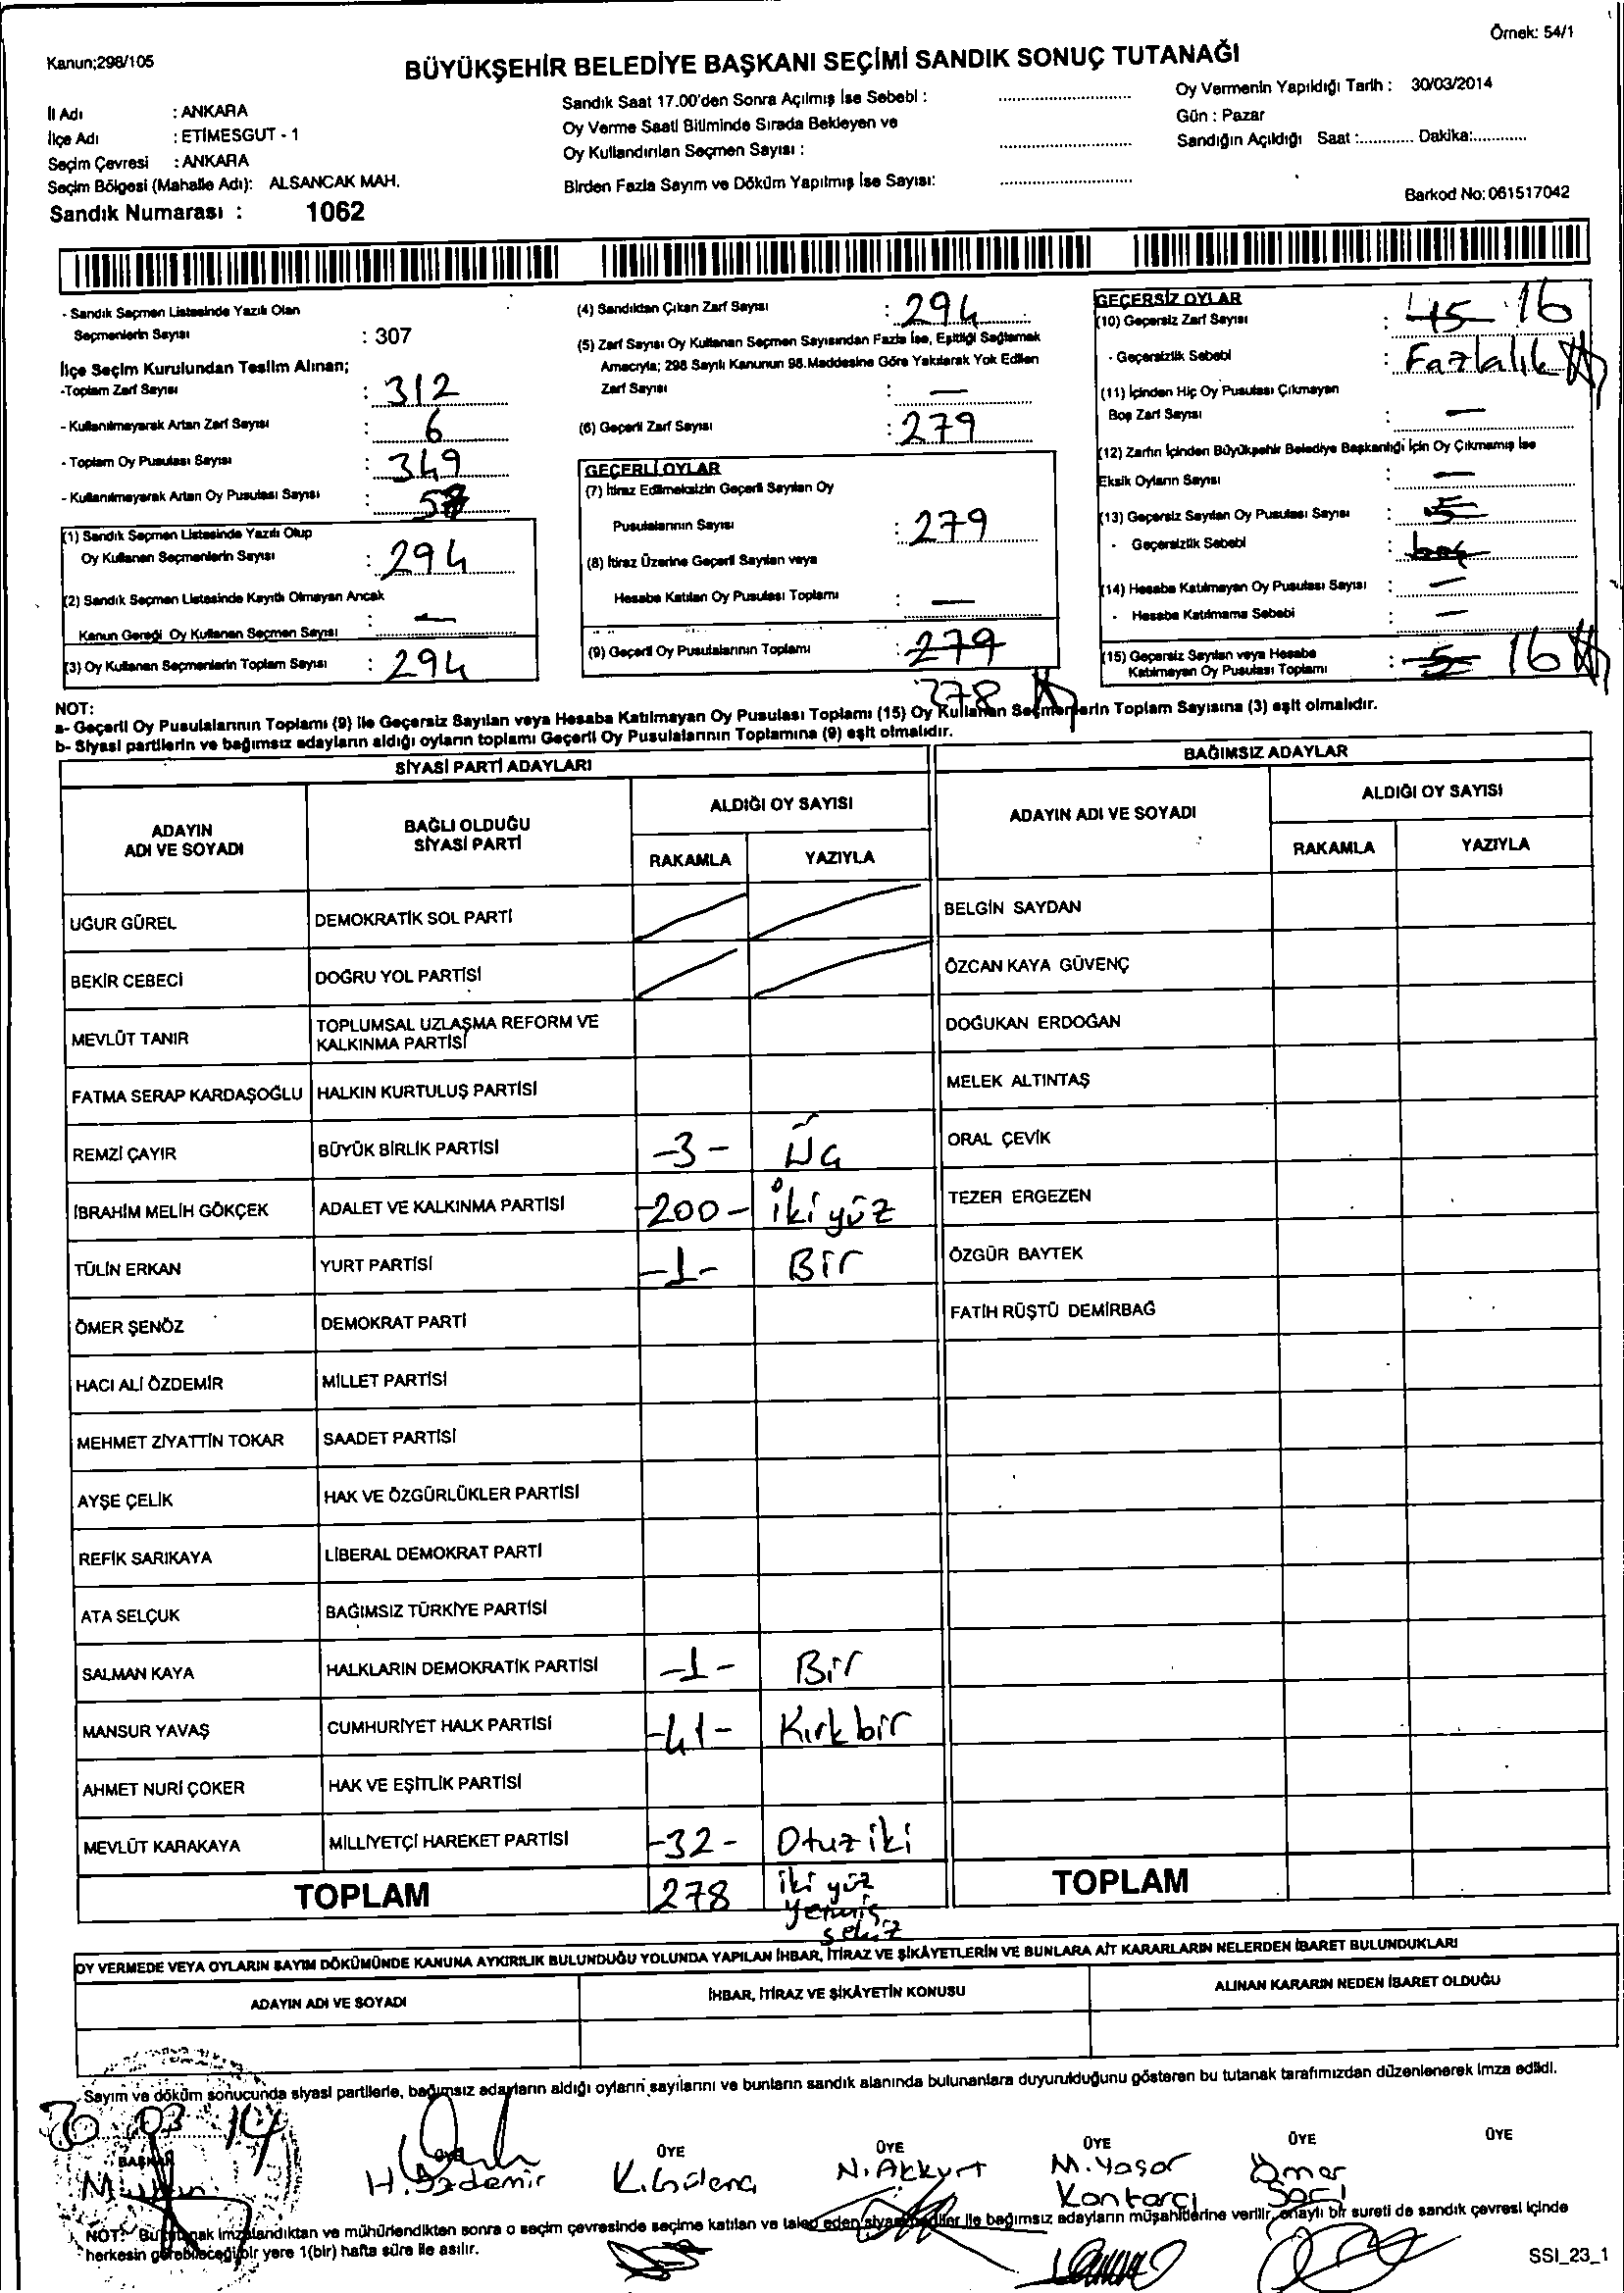 Örnek: 54/1
Kanun;298/105
BÜYÜKŞEHİR BELEDİYE BAŞKANI SEÇİMİ SANDIK SONUÇ TUTANAĞI
İl Adı : ANKARA
İlçe Adı : ETİMESGUT - 1
Seçim Çevresi : ANKARA
Seçim Bölgesi (Mahalle Adı): ALSANCAK MAH.
Sandık Numarası : 1062
Sandık Saat 17.00'den Sonra Açılmış İse Sebebi :
Oy Verme Saati Bitiminde Sırada Bekleyen ve
Oy Kullandırılan Seçmen Sayısı :
Birden Fazla Sayım ve Döküm Yapılmış İse Sayısı:
Oy Vermenin Yapıldığı Tarih : 30/03/2014
Gün : Pazar
Sandığın Açıldığı Saat :............ Dakika:............
Barkod No: 061517042
- Sandık Seçmen Listesinde Yazılı Olan
Seçmenlerin Sayısı : 307
İlçe Seçim Kurulundan Teslim Alınan;
-Toplam Zarf Sayısı : 312
- Kullanılmayarak Artan Zarf Sayısı : 6
- Toplam Oy Pusulası Sayısı : 349
- Kullanılmayarak Artan Oy Pusulası Sayısı : 5
(1) Sandık Seçmen Listesinde Yazılı Olup
Oy Kullanan Seçmenlerin Sayısı : 294
(2) Sandık Seçmen Listesinde Kayıtlı Olmayan Ancak
Kanun Gereği Oy Kullanan Seçmen Sayısı : —
(3) Oy Kullanan Seçmenlerin Toplam Sayısı : 294
(4) Sandıktan Çıkan Zarf Sayısı : 294
(5) Zarf Sayısı Oy Kullanan Seçmen Sayısından Fazla İse, Eşitliği Sağlamak
Amacıyla; 298 Sayılı Kanunun 98.Maddesine Göre Yakılarak Yok Edilen
Zarf Sayısı : —
(6) Geçerli Zarf Sayısı : 279
GEÇERLİ OYLAR
(7) İtiraz Edilmeksizin Geçerli Sayılan Oy
Pusulalarının Sayısı : 279
(8) İtiraz Üzerine Geçerli Sayılan veya
Hesaba Katılan Oy Pusulası Toplamı : —
(9) Geçerli Oy Pusulalarının Toplamı : 279
278
GEÇERSİZ OYLAR
(10) Geçersiz Zarf Sayısı : 15 16
- Geçersizlik Sebebi : Fazlalık
(11) İçinden Hiç Oy Pusulası Çıkmayan
Boş Zarf Sayısı : —
(12) Zarfın İçinden Büyükşehir Belediye Başkanlığı İçin Oy Çıkmamış İse
Eksik Oyların Sayısı : —
(13) Geçersiz Sayılan Oy Pusulası Sayısı : 5
- Geçersizlik Sebebi : boş
(14) Hesaba Katılmayan Oy Pusulası Sayısı : —
- Hesaba Katılmama Sebebi : —
(15) Geçersiz Sayılan veya Hesaba
Katılmayan Oy Pusulası Toplamı : 5 16
NOT:
a- Geçerli Oy Pusulalarının Toplamı (9) ile Geçersiz Sayılan veya Hesaba Katılmayan Oy Pusulası Toplamı (15) Oy Kullanan Seçmenlerin Toplam Sayısına (3) eşit olmalıdır.
b- Siyasi partilerin ve bağımsız adayların aldığı oyların toplamı Geçerli Oy Pusulalarının Toplamına (9) eşit olmalıdır.
SİYASİ PARTİ ADAYLARI
BAĞIMSIZ ADAYLAR
ADAYIN ADI VE SOYADI
BAĞLI OLDUĞU SİYASİ PARTİ
ALDIĞI OY SAYISI
RAKAMLA YAZIYLA
ADAYIN ADI VE SOYADI
ALDIĞI OY SAYISI
RAKAMLA YAZIYLA
UĞUR GÜREL DEMOKRATİK SOL PARTİ BELGİN SAYDAN
BEKİR CEBECİ DOĞRU YOL PARTİSİ ÖZCAN KAYA GÜVENÇ
MEVLÜT TANIR TOPLUMSAL UZLAŞMA REFORM VE KALKINMA PARTİSİ DOĞUKAN ERDOĞAN
FATMA SERAP KARDAŞOĞLU HALKIN KURTULUŞ PARTİSİ MELEK ALTINTAŞ
REMZİ ÇAYIR BÜYÜK BİRLİK PARTİSİ -3- Üç ORAL ÇEVİK
İBRAHİM MELİH GÖKÇEK ADALET VE KALKINMA PARTİSİ -200- İki yüz TEZER ERGEZEN
TÜLİN ERKAN YURT PARTİSİ -1- Bir ÖZGÜR BAYTEK
ÖMER ŞENÖZ DEMOKRAT PARTİ FATİH RÜŞTÜ DEMİRBAĞ
HACI ALİ ÖZDEMİR MİLLET PARTİSİ
MEHMET ZİYATTİN TOKAR SAADET PARTİSİ
AYŞE ÇELİK HAK VE ÖZGÜRLÜKLER PARTİSİ
REFİK SARIKAYA LİBERAL DEMOKRAT PARTİ
ATA SELÇUK BAĞIMSIZ TÜRKİYE PARTİSİ
SALMAN KAYA HALKLARIN DEMOKRATİK PARTİSİ -1- Bir
MANSUR YAVAŞ CUMHURİYET HALK PARTİSİ -41- Kırk bir
AHMET NURİ ÇOKER HAK VE EŞİTLİK PARTİSİ
MEVLÜT KARAKAYA MİLLİYETÇİ HAREKET PARTİSİ -32- Otuz iki
TOPLAM 278 İki yüz yetmiş sekiz TOPLAM
OY VERMEDE VEYA OYLARIN SAYIM DÖKÜMÜNDE KANUNA AYKIRILIK BULUNDUĞU YOLUNDA YAPILAN İHBAR, İTİRAZ VE ŞİKÂYETLERİN VE BUNLARA AİT KARARLARIN NELERDEN İBARET BULUNDUKLARI
ADAYIN ADI VE SOYADI İHBAR, İTİRAZ VE ŞİKÂYETİN KONUSU ALINAN KARARIN NEDEN İBARET OLDUĞU
Sayım ve döküm sonucunda siyasi partilerle, bağımsız adayların aldığı oyların sayılarını ve bunların sandık alanında bulunanlara duyurulduğunu gösteren bu tutanak tarafımızdan düzenlenerek imza edildi.
30 03 14
BAŞKAN ÜYE ÜYE ÜYE ÜYE ÜYE ÜYE
H. Özdemir K. Gülenç N. Akkurt M. Yaşar Kantarcı Ömer
NOT: Bu tutanak imzalandıktan ve mühürlendikten sonra o seçim çevresinde seçime katılan ve talep eden siyasi partiler ile bağımsız adayların müşahitlerine verilir, onaylı bir sureti de sandık çevresi içinde
herkesin görebileceği bir yere 1(bir) hafta süre ile asılır.
SSI_23_1